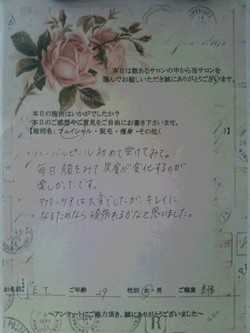 本日は数あるサロンの中から当サロンを
選んでお越しいただき誠にありがとうございます。
本日の施術はいかがでしたか?
本日のご感想やご意見をご自由にお書き下さいませ。
【施術名:フェイシャル・脱毛・痩身・その他】
ハーバルピール初めて受けてみて。
毎日顔をみて皮膚が変化するのが
楽しかったです。
アフターケアは大変でしたが、キレイに
なるためなら頑張れるかなと思いました。
お名前 E.T ご年齢 29 性別 女・男 ご職業
~アンケートにご協力頂き、誠にありがとうございました~